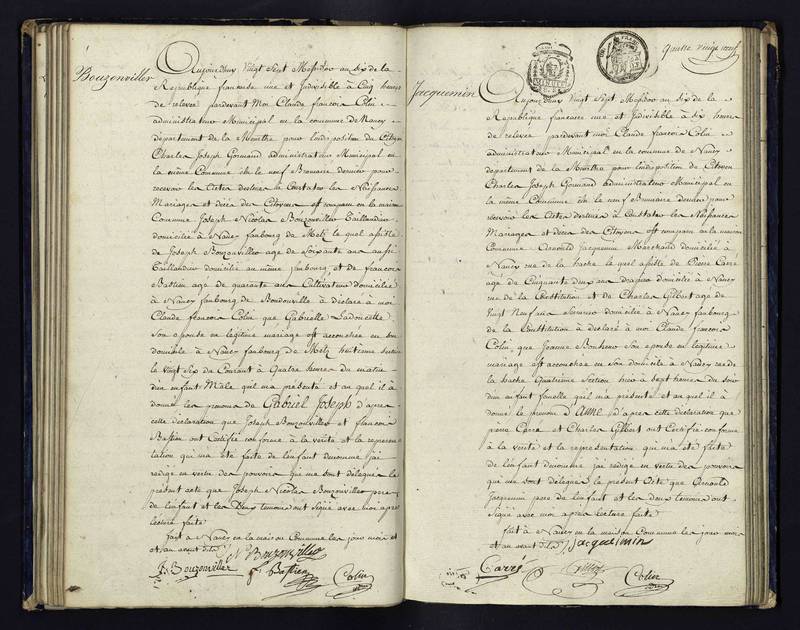 Bouzonviller
Aujourdhuy Vingt Sept Messidor an six de la
République française une et Indivisible à Cinq heures
de relevée pardevant Moi Claude francois Colin
administrateur Municipal en la commune de Nancy
département de la Meurthe pour lindisposition du Citoyen
Charles Joseph Gormand administrateur Municipal en
la même Commune élu le neuf Brumaire dernier pour
recevoir les Actes destinés à Constater les Naissances
Mariages et décès des Citoyens est comparu en la maison
Commune Joseph Nicolas Bouzonviller Taillandier
domicilié à Nancy faubourg de Metz le quel assisté
de Joseph Bouzonviller age de Soixante ans aussi
Taillandier domicilié au même faubourg et de francois
Bastien age de quarante ans Cultivateur domicilié
à Nancy faubourg de Boudonville à déclaré à moi
Claude francois Colin que Gabrielle
Son epouse en légitime mariage est accouchée en son
domicile à Nancy faubourg de Metz huitieme Section
le vingt Six du Courant à Quatre heures du matin
dun enfant Mâle quil ma présenté et au quel il à
donné les prenoms de Gabriel Joseph d'après
cette déclaration que Joseph Bouzonviller et francois
Bastien ont Certifié conforme à la vérité et la représen
tation qui ma été faite de lenfant denommé jai
redigé en vertu des pouvoirs qui me sont délégués le
présent acte que Joseph Nicolas Bouzonviller pere
de lenfant et les Deux temoins ont Signé avec moi après
lecture faite
fait à Nancy en la maison Commune les jour mois et
et an avant dits
N Bouzonviller
J. Bouzonviller
f. Bastien
Colin
quatre vingt neuf
Jacquemin
Aujourdhuy Vingt Sept Messidor an six de la
République française une et Indivisible à six heures
de relevée pardevant moi Claude francois Colin
administrateur Municipal en la commune de Nancy
département de la Meurthe pour lindisposition du Citoyen
Charles Joseph Gormand administrateur Municipal en
la même Commune élu le neuf Brumaire dernier pour
recevoir les Actes destinés à Constater les Naissances
Mariages et décès des Citoyens est comparu en la maison
Commune Arnould Jacquemin Marchand domicilié à
Nancy rue de la hache le quel assisté de Pierre Carré
age de Cinquante deux ans drapier domicilié à Nancy
rue de la Constitution et de Charles Gilbert age de
Vingt Neuf ans domicilié à Nancy faubourg
de la Constitution à déclaré à moi Claude francois
Colin que Jeanne Son epouse en légitime
mariage est accouchée en Son domicile à Nancy rue de
la hache Quatrième Section hier à Sept heures du Soir
dun enfant femelle quil ma présenté et au quel il à
donné le prenom d'Aimé d'après cette déclaration que
pierre Carré et Charles Gilbert ont Certifié conforme
à la vérité et la représentation qui ma été faite
de lenfant denommé jai redigé en vertu des pouvoirs
qui me sont délégués le présent Acte que Arnould
Jacquemin pere de lenfant et les deux temoins ont
Signé avec moi après lecture faite
fait à Nancy en la maison Commune les jour mois
et an avant dits
Jacquemin
Carré
Colin